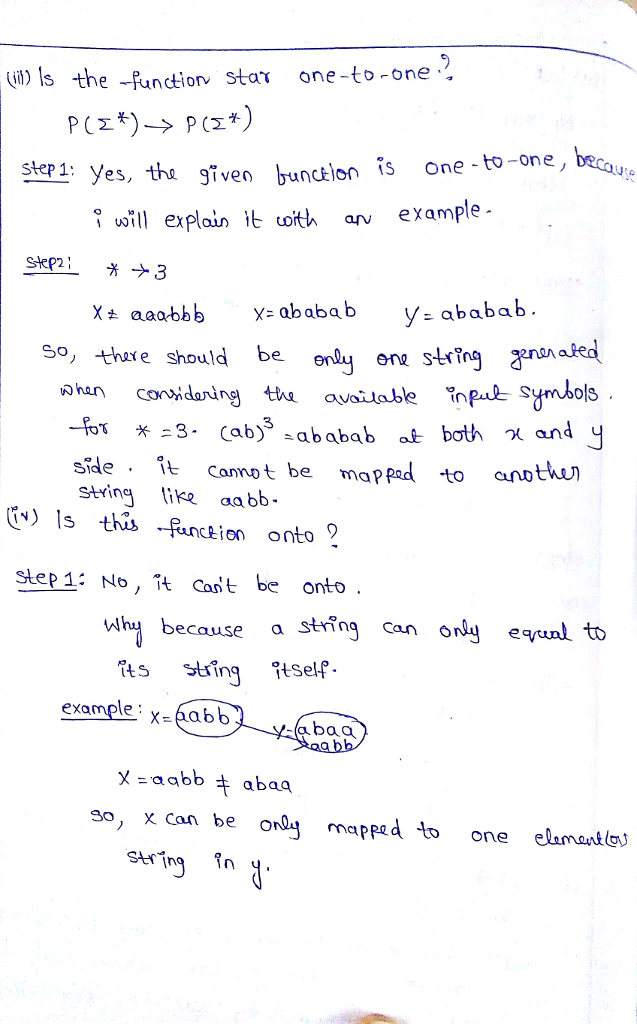 (iii) Is the function star one-to-one?
P(Σ*) → P(Σ*)
Step 1: Yes, the given function is one-to-one, because
i will explain it with an example.
Step2: * → 3
X ≠ aaabbb X=ababab Y=ababab.
So, there should be only one string generated
when considering the available input symbols.
for * =3. (ab)³ =ababab at both x and y
side. it cannot be mapped to another
string like aabb.
(iv) Is this function onto?
Step 1: No, it can't be onto.
Why because a string can only equal to
its string itself.
example: X=aabb Y=abaa
aabb
X = aabb ≠ abaa
So, X can be only mapped to one element(or)
string in y.